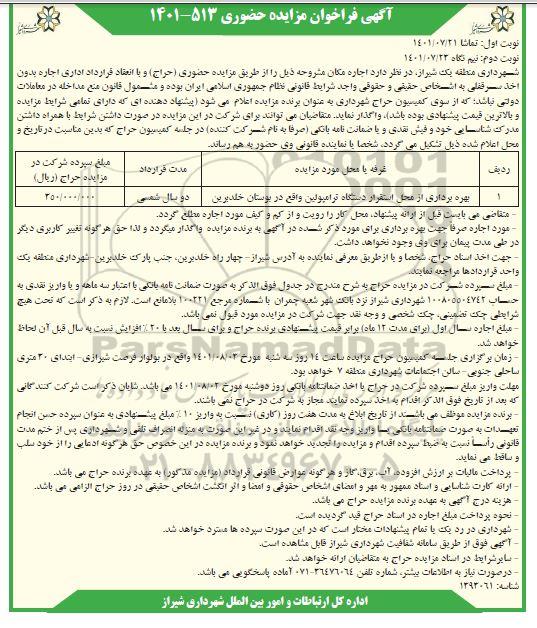 آگهی فراخوان مزایده حضوری ۵۱۳-۱۴۰۱
نوبت اول: تماشا ۱۴۰۱/۰۷/۲۱
نوبت دوم: نیم نگاه ۱۴۰۱/۰۷/۲۳
شهرداری منطقه یک شیراز، در نظر دارد اجاره مکان مشروحه ذیل را از طریق مزایده حضوری (حراج) و با انعقاد قرارداد اداری اجاره بدون
اخذ سرقفلی به اشخاص حقیقی و حقوقی واجد شرایط قانونی نظام جمهوری اسلامی ایران بوده و مشمول قانون منع مداخله در معاملات
دولتی نباشد؛ که از سوی کمیسیون حراج شهرداری به عنوان برنده مزایده اعلام می شود (پیشنهاد دهنده ای که دارای تمامی شرایط مزایده
و بالاترین قیمت پیشنهادی بوده باشد)، واگذار نماید. متقاضیان می توانند برای شرکت در این مزایده در صورت داشتن شرایط با همراه داشتن
مدرک شناسایی خود و فیش نقدی و یا ضمانت نامه بانکی (صرفا به نام شرکت کننده) در جلسه کمیسیون حراج که بدین مناسبت در تاریخ و
محل اعلام شده ذیل تشکیل می گردد، شخصا یا نماینده قانونی وی حضور به هم رساند.
ردیف
غرفه یا محل مورد مزایده
مدت قرارداد
مبلغ سپرده شرکت در مزایده حراج (ریال)
۱
بهره برداری از محل استقرار دستگاه ترامپولین واقع در بوستان خلدبرین
دو سال شمسی
۳۵۰/۰۰۰/۰۰۰
- متقاضی می بایست قبل از ارائه پیشنهاد، محل کار را رویت و از کم و کیف مورد اجاره مطلع گردد.
- مورد اجاره صرفا جهت بهره برداری برای مورد ذکر شده در آگهی به برنده مزایده واگذار میگردد و لذا حق هرگونه تغییر کاربری دیگر
در طی مدت پیمان برای وی وجود نخواهد داشت.
- جهت اخذ اسناد حراج، شخصا و یا از طریق معرفی نماینده به آدرس شیراز- چهار راه خلدبرین، جنب پارک خلدبرین-شهرداری منطقه یک
واحد قراردادها مراجعه نمایند.
- مبلغ سپرده شرکت در مزایده حراج به شرح مندرج در جدول فوق الذکر به صورت ضمانت نامه بانکی با اعتبار سه ماهه و یا واریز نقدی به
حساب ۱۰۰۸۰۵۵۰۴۷۴۲ شهرداری شیراز نزد بانک شهر شعبه چمران با شماره مرجع ۱۰۰۲۲۱ بلامانع است. لازم به ذکر است که تحت هیچ
شرایطی چک تضمینی، چک شخصی و وجه نقد جهت شرکت در مزایده مورد قبول نمی باشد.
- مبلغ اجاره سال اول (برای مدت ۱۲ ماه) برابر قیمت پیشنهادی برنده حراج و برای سال بعد با ۲۰٪ افزایش نسبت به سال قبل آن لحاظ
خواهد شد.
- زمان برگزاری جلسه کمیسیون حراج مزایده ساعت ۱۴ روز سه شنبه مورخ ۱۴۰۱/۰۸/۰۳ واقع در بولوار فرصت شیرازی- ابتدای ۳۰ متری
ساحلی جنوبی- سالن اجتماعات شهرداری منطقه ۷ خواهد بود.
مهلت واریز مبلغ سپرده شرکت در حراج یا اخذ ضمانتنامه بانکی روز دوشنبه مورخ ۱۴۰۱/۰۸/۰۲ می باشد. شایان ذکر است شرکت کنندگانی
که بعد از تاریخ فوق الذکر اقدام به اخذ سپرده نمایند مجاز به شرکت در حراج نمی باشند.
- برنده مزایده موظف می باشد از تاریخ ابلاغ به مدت هفت روز (کاری) نسبت به واریز ۱۰٪ مبلغ پیشنهادی به عنوان سپرده حسن انجام
تعهدات به صورت ضمانتنامه بانکی یا واریز وجه نقد اقدام نماید و در غیر این صورت به منزله انصراف تلقی و شهرداری پس از ختم مدت
قانونی رأسا نسبت به ضبط سپرده اقدام و مزایده را تجدید خواهد نمود و برنده مزایده در این خصوص حق هرگونه ادعایی را از خود سلب
و ساقط می نماید.
- پرداخت مالیات بر ارزش افزوده، آب، برق، گاز و هرگونه عوارض قانونی قرارداد (مزایده مذکور) به عهده برنده حراج می باشد.
- ارائه کارت شناسایی و اسناد ممهور به مهر و امضای اشخاص حقوقی و امضا و اثر انگشت اشخاص حقیقی در روز حراج الزامی می باشد.
- هزینه درج آگهی به عهده برنده مزایده حراج می باشد.
- نحوه پرداخت مبلغ اجاره در اسناد حراج قید گردیده است.
- شهرداری در رد یک یا تمام پیشنهادات مختار است که در این صورت سپرده ها مسترد خواهد شد.
- آگهی فوق از طریق سامانه شفافیت شهرداری شیراز قابل مشاهده است.
- سایر شرایط در اسناد مزایده حراج به متقاضیان ارائه خواهد شد.
- در صورت نیاز به اطلاعات بیشتر، شماره تلفن ۳۶۴۷۶۰۶۴-۰۷۱ آماده پاسخگویی می باشد.
شناسه: ۱۳۹۳۰۶۱
اداره کل ارتباطات و امور بین الملل شهرداری شیراز
ParsNamadData
۰۲۱-۸۸۳۴۹۶۷۰-۵